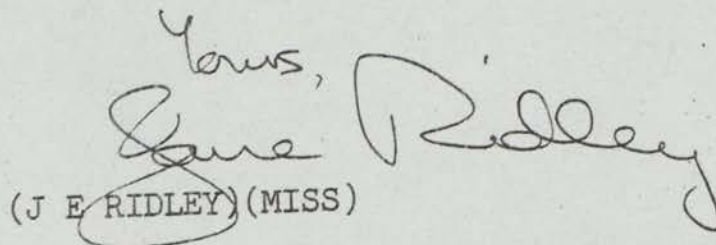 Yours,
Jane Ridley
(J E RIDLEY)(MISS)